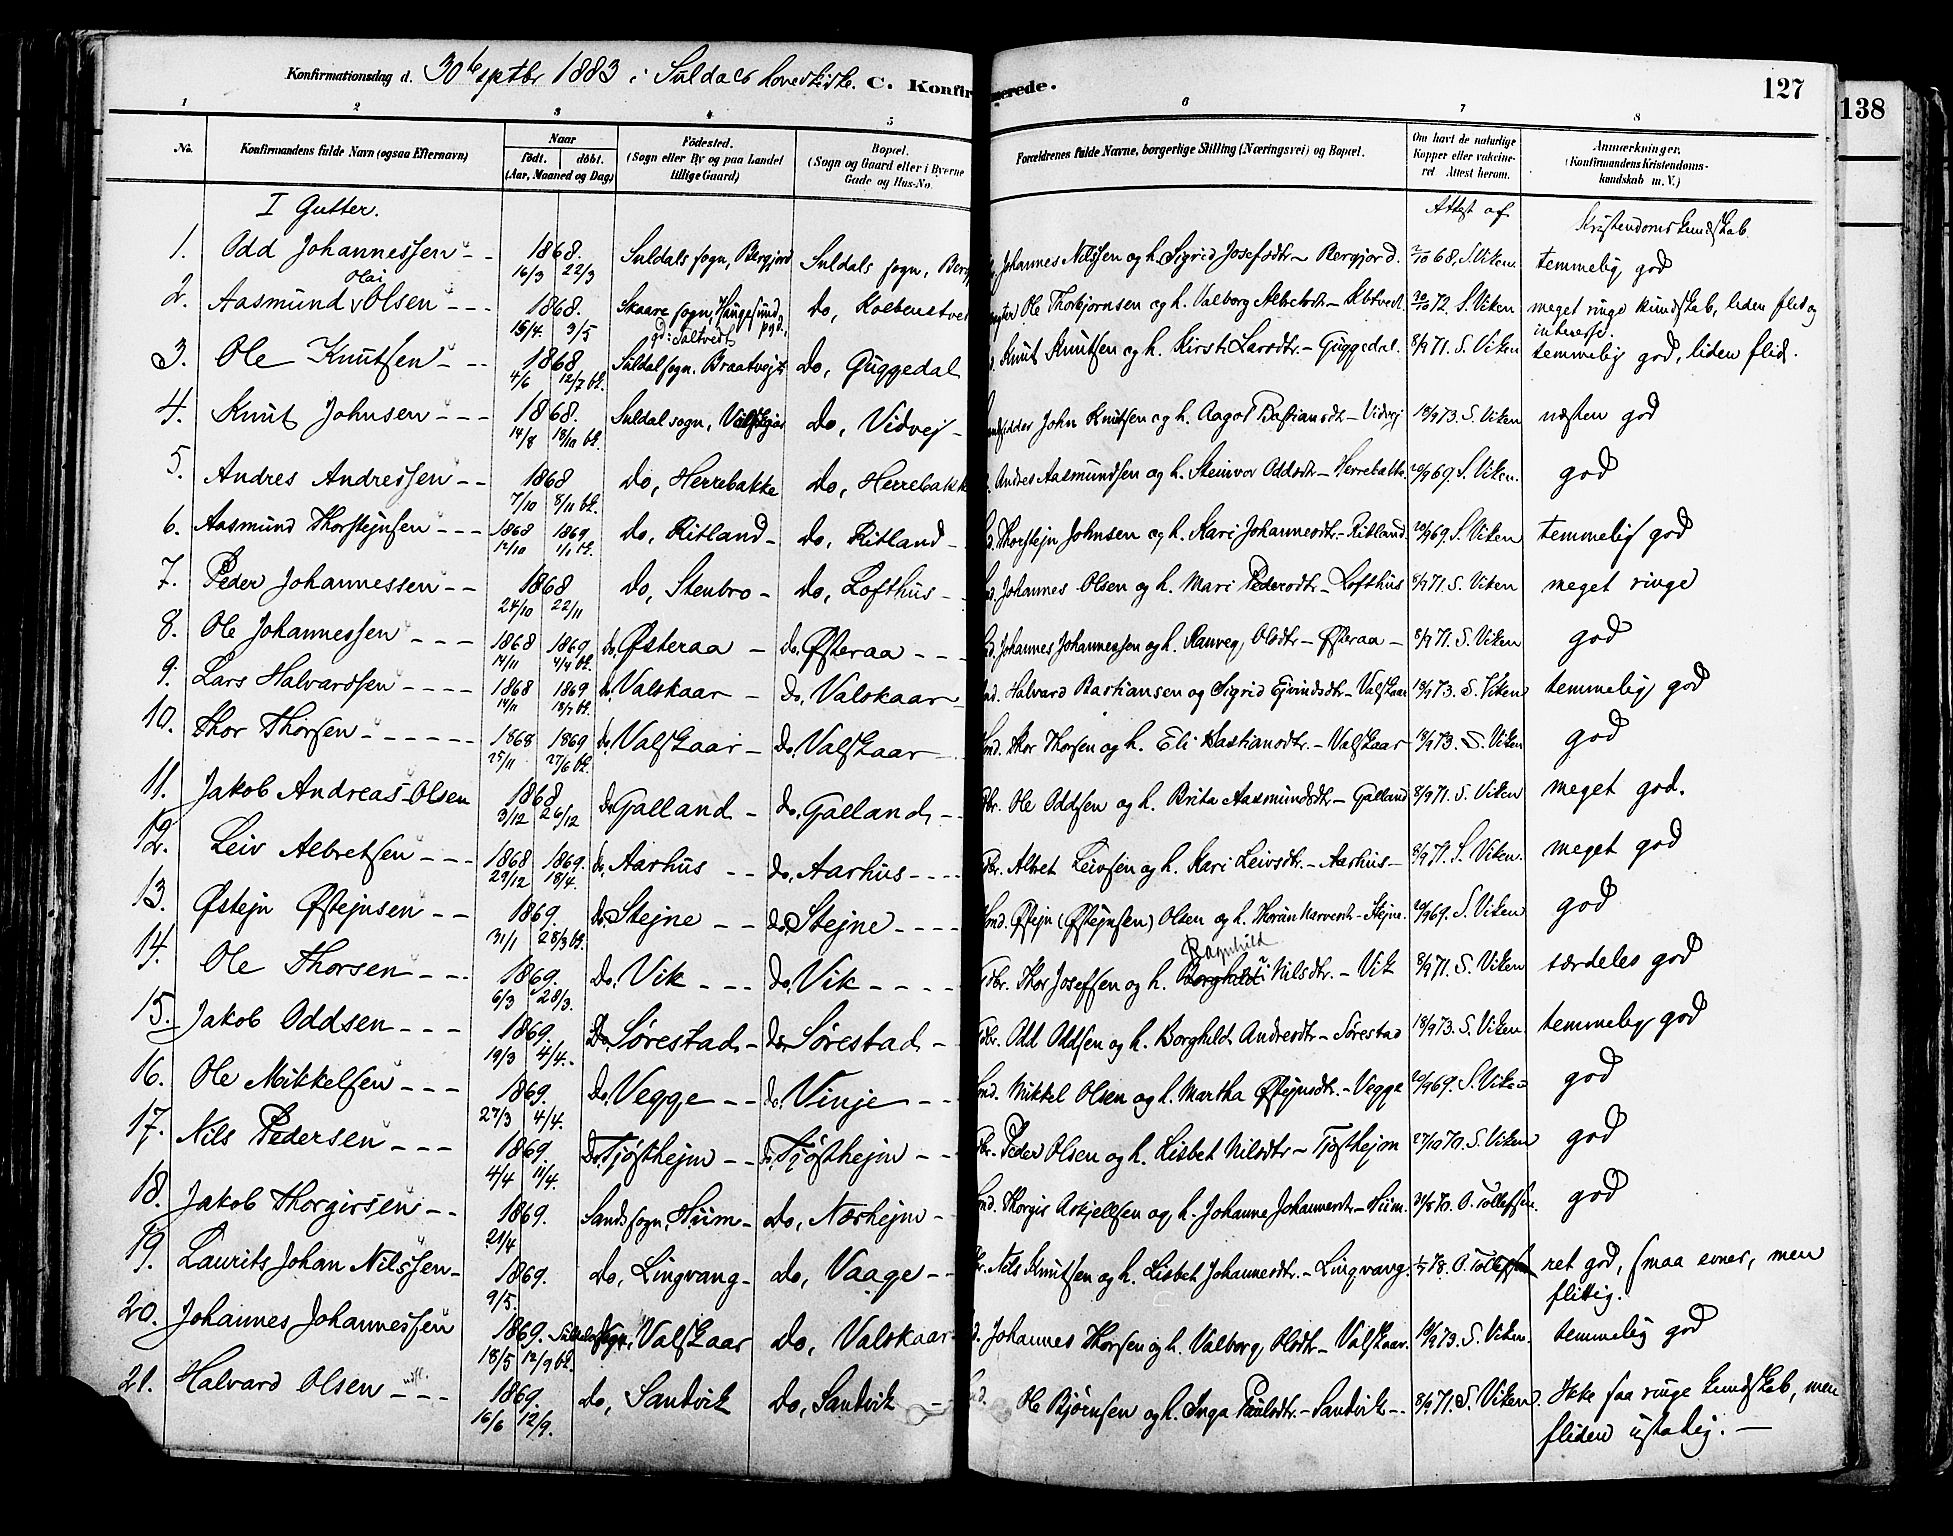 Konfirmationsdag d. 30te septbr 1883 i Suldals hovedkirke. C. Konfirmerede. 127
138
1 2 3 4 5 6 7 8
No. Konfirmandens fulde Navn (ogsaa Efternavn) Naar født. døbt. (Aar, Maaned og Dag) Fødested. (Sogn eller By og paa Landet tillige Gaard) Bopæl. (Sogn og Gaard eller i Byerne Gade og Hus-No. Forældrenes fulde Navne, borgerlige Stilling (Næringsvei) og Bopæl. Om havt de naturlige Kopper eller vakcineret Attest herom. Anmærkninger, (Konfirmandens Kristendomskundskab m. V.)
I Gutter. Attest af Kristendomskundskab
1. Odd Johannessen 1868. 16/3 22/3 Suldals sogn, Bergjord Suldals sogn, Berg Johannes Nilssen og h. Sigrid Josefsdtr - Bergjord. 2/10 68. S. Viken. temmelig god
2. Aasmund Olai Olsen 1868. 15/4. 3/5 Skaare sogn, Haugesund pgd. do, Ole Thorbjørnsen og h. Valborg 72. S. Viken meget ringe kundskab, liden flid og interesse.
3. Ole Knutsen 1868 4/6 12/7 bk. Suldal sogn. Braatvejt do, Guggedal Knut Knutsen og h. Kirsti Larsdtr. - Guggedal. 8/9 71. S. Viken temmelig god, liden flid.
4. Knut Johnsen 1868. 14/8 18/10 bk. Suldal sogn, do, Vidvej John Knutsen og h. Aagot Bastiansdtr - Vidvej 18/9 73. S. Viken næsten god
5. Andres Andressen 1868 7/10 8/11 bk. do, Herrebakke do, Herrebakk Andres Aasmundsen og h. Steinvor Oddsdtr - Herrebakke 20/9 69. S. Viken. god
6. Aasmund Thorstejnsen 1868 12/10 1869 1/1 bk. do, Ritland - do, Ritland - Thorstejn Johnsen og h. Kari Johannesdtr. - Ritland. 20/9 69. S. Viken temmelig god
7. Peder Johannessen 1868 24/10 22/11 do, Stenbro - do, Lofthus - Johannes Olsen og h. Mari Pedersdtr - Lofthus 8/9 71. S. Viken meget ringe
8. Ole Johannessen 1868 14/11 1869. 4/4 bk. do, Østeraa - do. Østeraa - Johannes Johannessen og h. Ranveg Olsdtr - Østeraa - 8/9 71. S. Viken god
9. Lars Halvardsen 1868 14/11 1869 18/7 bk. do. Valskaar - do. Valskaar Halvard Bastiansen og Sigrid Ejvindsdtr - Valskaar 18/9 73. S. Viken temmelig god
10. Thor Thorsen 1868 25/11 1869 27/6 bk. do. Valskaar - do. Valskaar Thor Thorsen og h. Eli Bastiansdtr. - Valskaar 18/9 73. S. Viken god
11. Jakob Andreas Olsen 1868 3/12 26/12 do. Galland - do. Galland - Gbr. Ole Oddsen og h. Brita Aasmundsdtr - Galland 8/9 71. S. Viken meget god.
12. Leiv Albretsen 1868 29/12 1869. 18/4. do. Aarhus do. Aarhus Gbr. Albret Leivsen og h. Kari Leivsdtr. - Aarhus - 8/9 71. S. Viken. meget god
13. Østejn Østejnsen 1869. 31/1 28/3 bk. do. Stejne do. Stejne Østejn (Østejnsen) Olsen og h. - Stejne. 20/9 69. S. Viken god
14. Ole Thorsen 1869. 6/3 28/3. do. Vik do. Vik Gbr. Thor Josefsen og h. Borghild Ragnhild Nilsdtr. - Vik 8/9 71. S. Viken særdeles god
15. Jakob Oddsen 1869. 19/3 4/4. Do. Sørestad - do Sørestad - Gbr. Odd Oddsen og h. Borghild Andresdtr - Sørestad 18/9 73. S. Viken temmelig god
16. Ole Mikkelsen 1869. 27/3 4/4. do. Vegge do. Vinje Mikkel Olsen og h. Martha Østejnsdtr. - Vegge 20/9 69. S. Viken god
17. Nils Pedersen 1869. 4/4 11/4. do. Tjøsthejm do. Tjøsthejm Gbr. Peder Olsen og h. Lisbet Nilsdtr - Tjøsthejm 27/10 70. S. Viken god
18. Jakob Thorgirsen 1869. 21/4 Sands sogn, Hiim - do, Nærhejm - Thorgir Askjellsen og h. Johanne Johannesdtr - Hiim. 31/8 70. O. Tollefsen. god
19. Laurits Johan Nilssen 1869. 9/5. do, Lingvang - do, Vaage - Nils Knutsen og h. Lisbet Johannesdtr. - Lingvang. 78. O. Tollefsen ret god, smaa evner, men flittig.
20. Johannes Johannessen 1869. 18/5 12/9 bk. Suldals sogn, Valskaar do, Valskaar Johannes Thorsen og h. Valborg Olsdtr - Valskaar. 18/9 73. S. Viken. temmelig god
21. Halvard Olsen 1869. 16/6 12/9. do, Sandvik do, Sandvik - Ole Bjørnsen og h. Inga Paulsdtr. - Sandvik - 8/9 71. S. Viken. Ikke saa ringe kundskab, men fliden ustadig. -